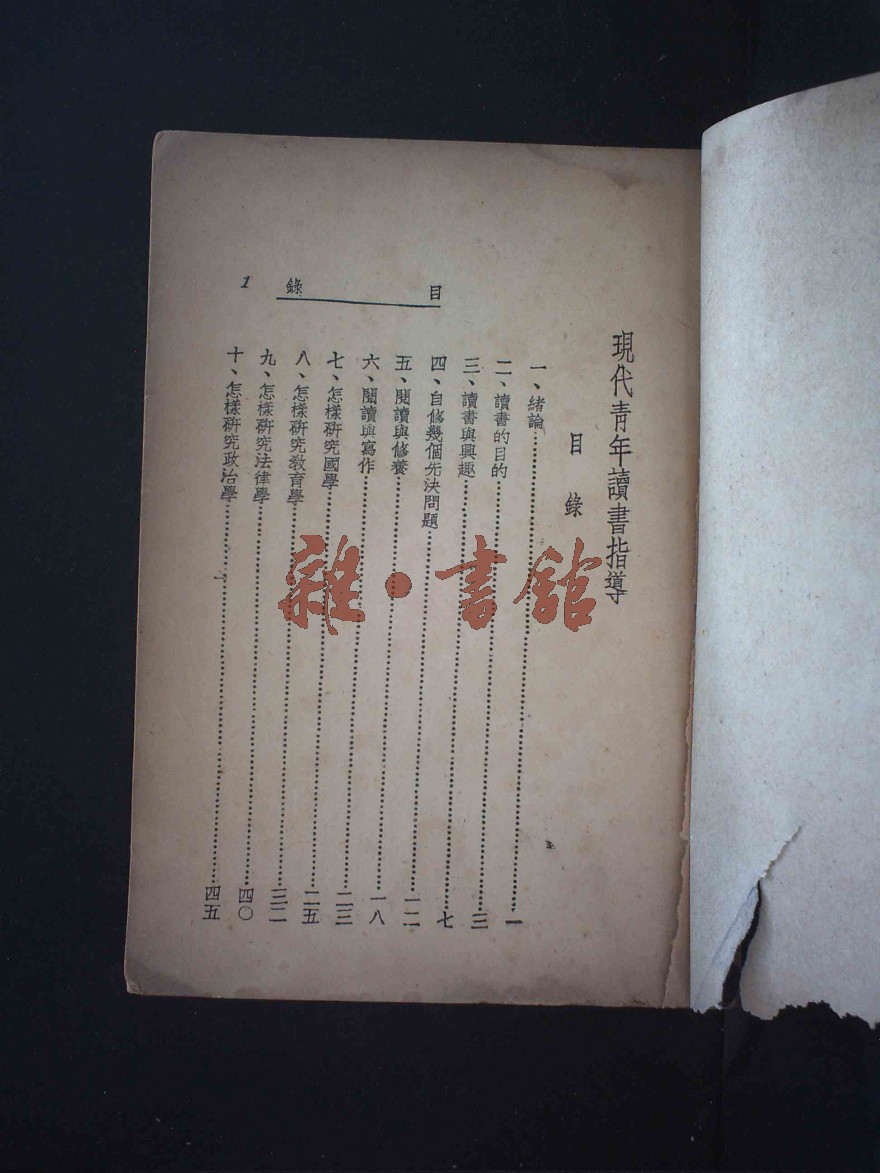 現代青年讀書指導
目錄
一、緒論………一
二、讀書的目的………三
三、讀書與興趣………七
四、自修幾個先決問題………一二
五、閱讀與修養………一八
六、閱讀與寫作………二三
七、怎樣研究國學………二五
八、怎樣研究教育學………三二
九、怎樣研究法律學………四〇
十、怎樣研究政治學………四五
目錄
1
雜·書館